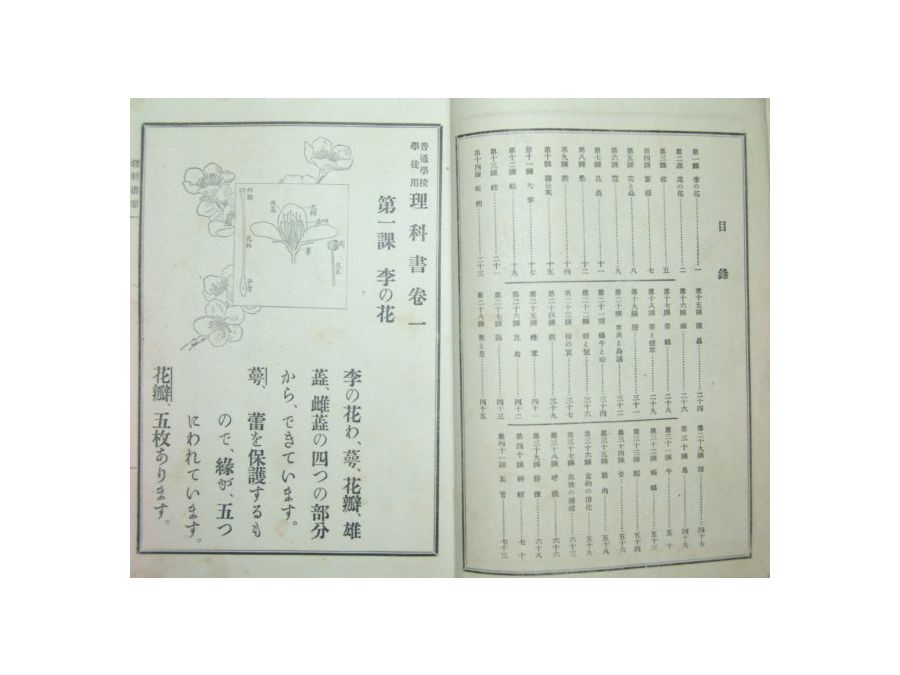 目錄
第一課 李の花 一
第二課 菜の花 二
第三課 蝶 五
第四課 紫雲英 七
第五課 花と蟲 八
第八課 桑 十二
第九課 燕 十四
第十課 蒲公英 十五
第十一課 大麥 十七
第十二課 蛙 十九
第十三課 二十一
第十四課 二十三
第十五課 二十四
第十六課 二十六
第十七課 二十八
第十八課 二十九
第十九課 三十一
第二十課 三十二
第二十一課 蝸牛と蛤 三十四
第二十二課 三十六
第二十三課 柿の實 三十七
第二十四課 三十九
第二十五課 松茸 四十一
第二十六課 昆布
第二十七課 鷄 四十三
第二十八課 四十五
第二十九課 四十七
第三十課 馬 四十九
第三十一課 牛 五十
第三十二課 蝙蝠 五十三
第三十三課 五十四
第三十四課 骨 五十六
第三十五課 筋肉 五十八
第三十六課 食物の消化 五十九
第三十七課 血液の循環 六十三
第三十八課 呼吸 六十六
第三十九課 六十八
第四十課 神經 七十
第四十一課 五官 七十三
普通學校
學徒用 理科書卷一
第一課 李の花
柱頭
花柱
子房
花瓣
雄蕊
萼
李の花わ、萼、花瓣、雄
蕋、雌蕋の四つの部分
から、できています。
萼、 蕾を保護するも
ので、緣が、五つ
にわれています。
花瓣、五枚あります。
理科書卷一